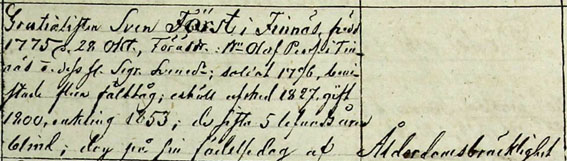 Gratialisten Sven Först i Finnås, född
1775, 28 Okt, Föräldr.: Olof Pers i Fin
nås o. dess h. Sigr. Svensd:; soldat 1796, bevi
stade flera fälttåg; erhöll afsked 1827. gift
1800, enkling 1853; de sista 5 lefnads åren
blind; dog på sin födelsedag af Ålderdomsbräcklighet